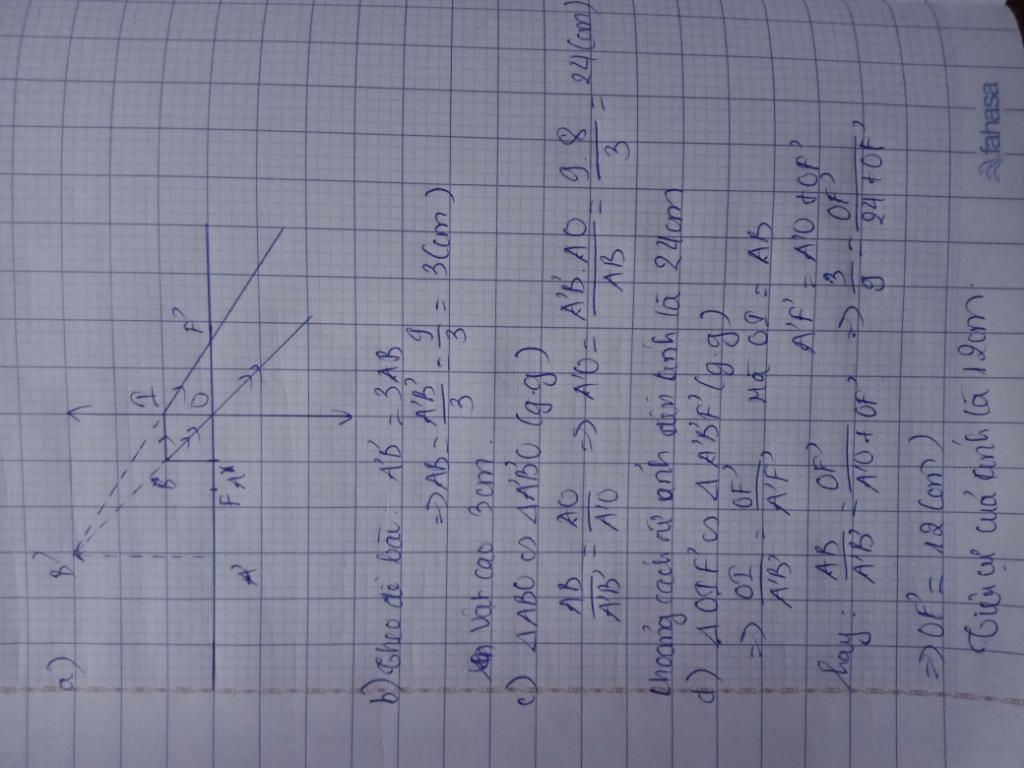 a)
B'
B
I
F'
O
F
A
A'
b) Theo đề bài: A'B' = 3AB
=> AB = A'B'/3 = 9/3 = 3(cm)
Vật cao 3cm.
c) ΔABO ∽ ΔA'B'O (g.g)
AB/A'B' = AO/A'O => A'O = A'B'.AO/AB = 9.8/3 = 24(cm)
Khoảng cách từ ảnh đến kính là 24cm
d) ΔOIF' ∽ ΔA'B'F' (g.g)
=> OI/A'B' = OF'/A'F' mà OI = AB
A'F' = A'O + OF'
hay: AB/A'B' = OF'/A'O + OF' => 3/9 = OF'/24 + OF'
=> OF' = 12 (cm)
Tiêu cự của kính là 12cm.
fahasa